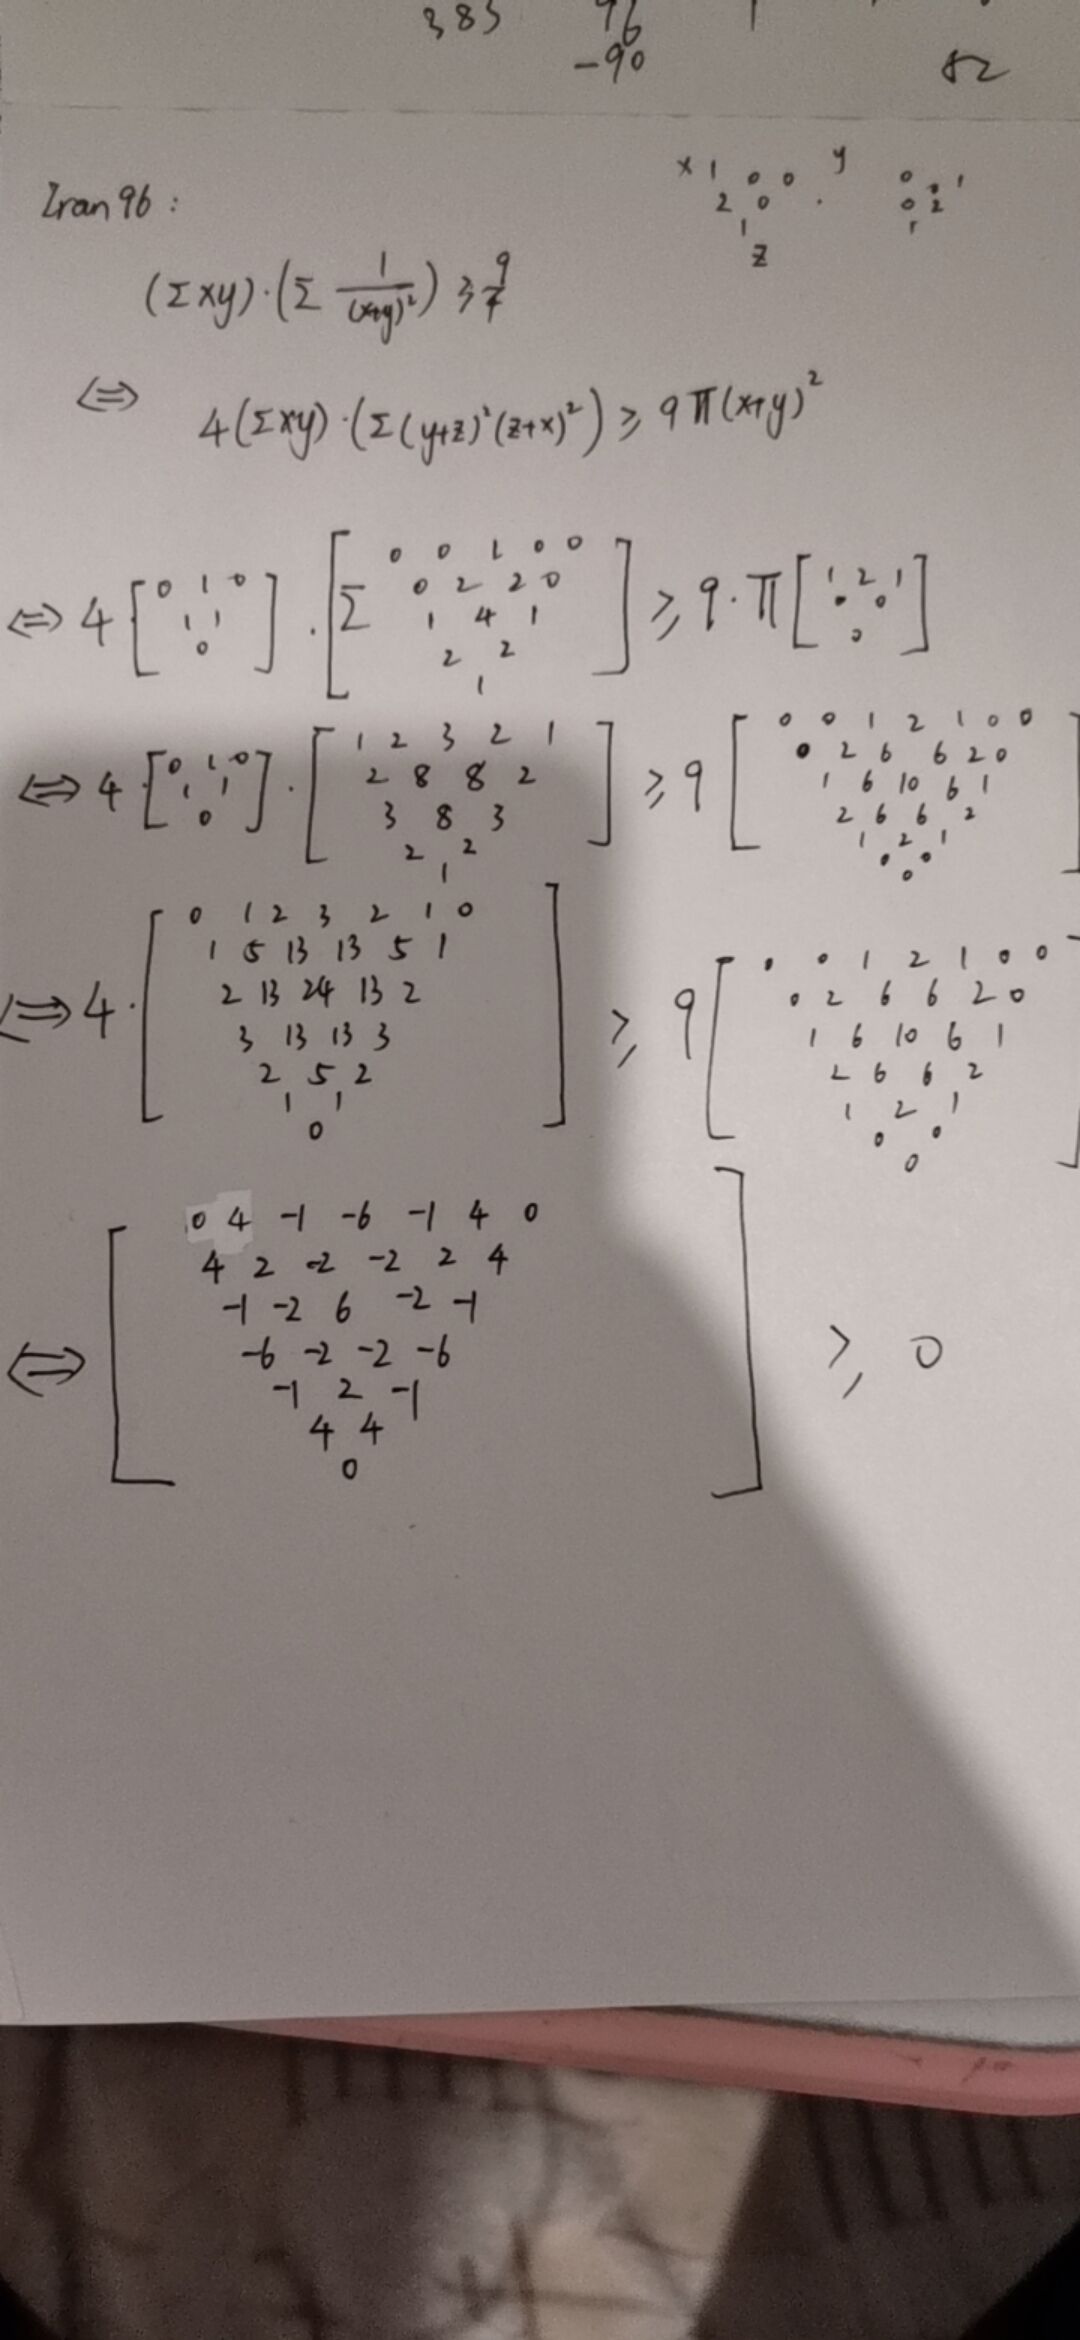 383 96 1
-90 52
x 1 0 0 y 0 0 1
2 0 . 0 2
1 1
z
Iran 96 :
(Σxy)·(Σ 1/(x+y)²) ≥ 9/4
⇔ 4(Σxy)·(Σ(y+z)²(z+x)²) ≥ 9 Π(x+y)²
⇔ 4 [ 0 1 0 / 1 1 / 0 ] · [ Σ 0 0 1 0 0 / 0 2 2 0 / 1 4 1 / 2 2 / 1 ] ≥ 9·Π [ 1 2 1 / 0 0 / 0 ]
⇔ 4 [ 0 1 0 / 1 1 / 0 ] · [ 1 2 3 2 1 / 2 8 8 2 / 3 8 3 / 2 2 / 1 ] ≥ 9 [ 0 0 1 2 1 0 0 / 0 2 6 6 2 0 / 1 6 10 6 1 / 2 6 6 2 / 1 2 1 / 0 0 / 0 ]
⇔ 4· [ 0 1 2 3 2 1 0 / 1 5 13 13 5 1 / 2 13 24 13 2 / 3 13 13 3 / 2 5 2 / 1 1 / 0 ] ≥ 9 [ 0 0 1 2 1 0 0 / 0 2 6 6 2 0 / 1 6 10 6 1 / 2 6 6 2 / 1 2 1 / 0 0 / 0 ]
⇔ [ 0 4 -1 -6 -1 4 0 / 4 2 -2 -2 2 4 / -1 -2 6 -2 -1 / -6 -2 -2 -6 / -1 2 -1 / 4 4 / 0 ] ≥ 0